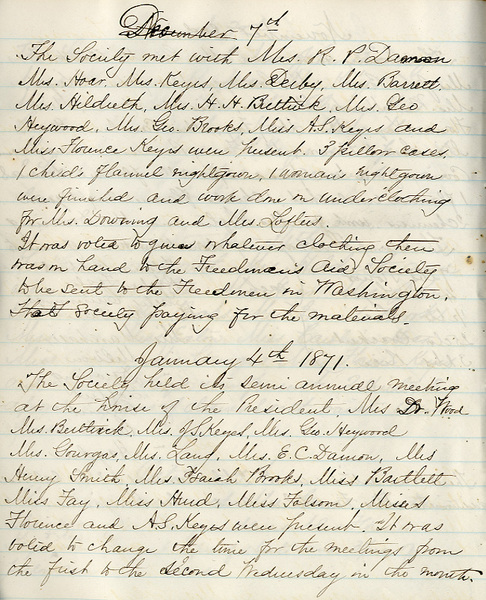 December 7th
The Society met with Mrs. R. P. Damon
Mrs. Hoar, Mrs. Keyes, Mrs. Derby, Mrs. Barrett,
Mrs. Hildreth, Mrs. H. H. Buttrick, Mrs. Geo
Heywood, Mrs. Geo. Brooks, Miss A. S. Keyes and
Miss Florence Keyes were present. 3 pillow cases,
1 child's flannel nightgown, 1 woman's nightgown
were finished and work done on underclothing
for Mrs. Downing and Mrs.
It was voted to give whatever clothing there
was on hand to the Freedman's Aid Society
to be sent to the Freedmen in Washington,
that Society paying for the materials.
January 4th 1871.
The Society held its semi annual meeting
at the house of the President, Mrs Dr. Wood
Mrs. Buttrick, Mrs. J. S. Keyes, Mrs. Geo. Heywood
Mrs. Gourgas, Mrs. Lang, Mrs. E. C. Damon, Mrs
Henry Smith, Mrs. Isaiah Brooks, Miss Bartlett
Miss Fay, Miss Hurd, Miss Folsom, Misses
Florence and A. S. Keyes were present. It was
voted to change the time for the meetings from
the first to the second Wednesday in the month.